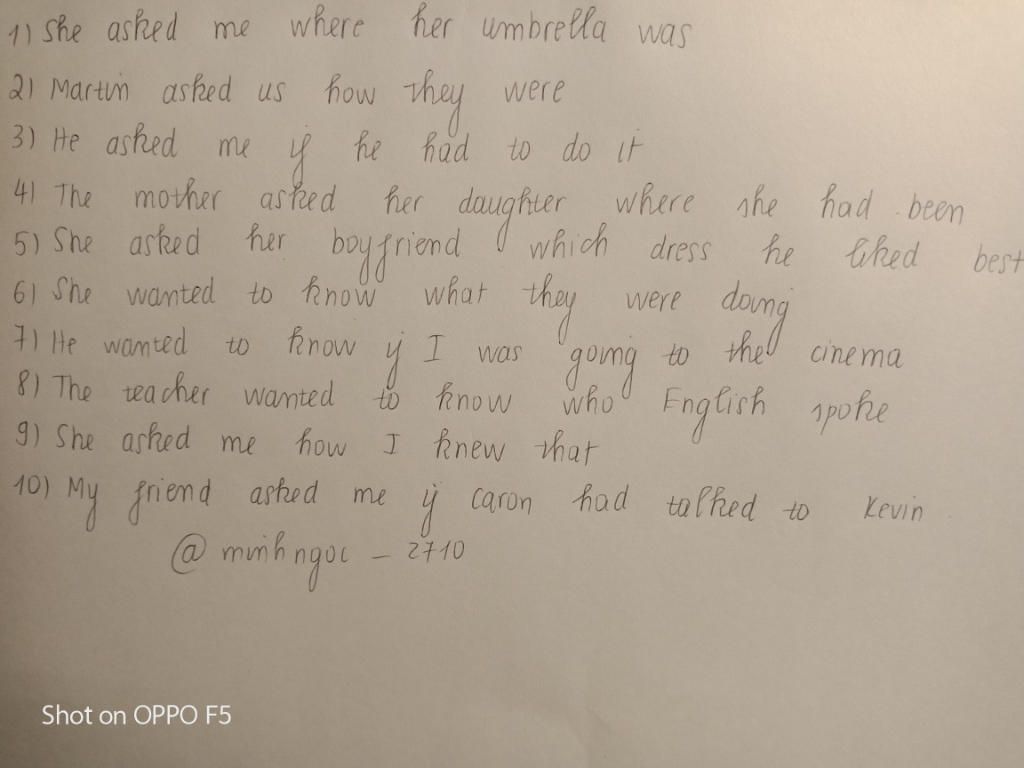 1) She asked me where her umbrella was
2) Martin asked us how they were
3) He asked me if he had to do it
4) The mother asked her daughter where she had been
5) She asked her boyfriend which dress he liked best
6) She wanted to know what they were doing
7) He wanted to know if I was going to the cinema
8) The teacher wanted to know who English spoke
9) She asked me how I knew that
10) My friend asked me if caron had talked to Kevin
@ minhngoc _ 2710
Shot on OPPO F5